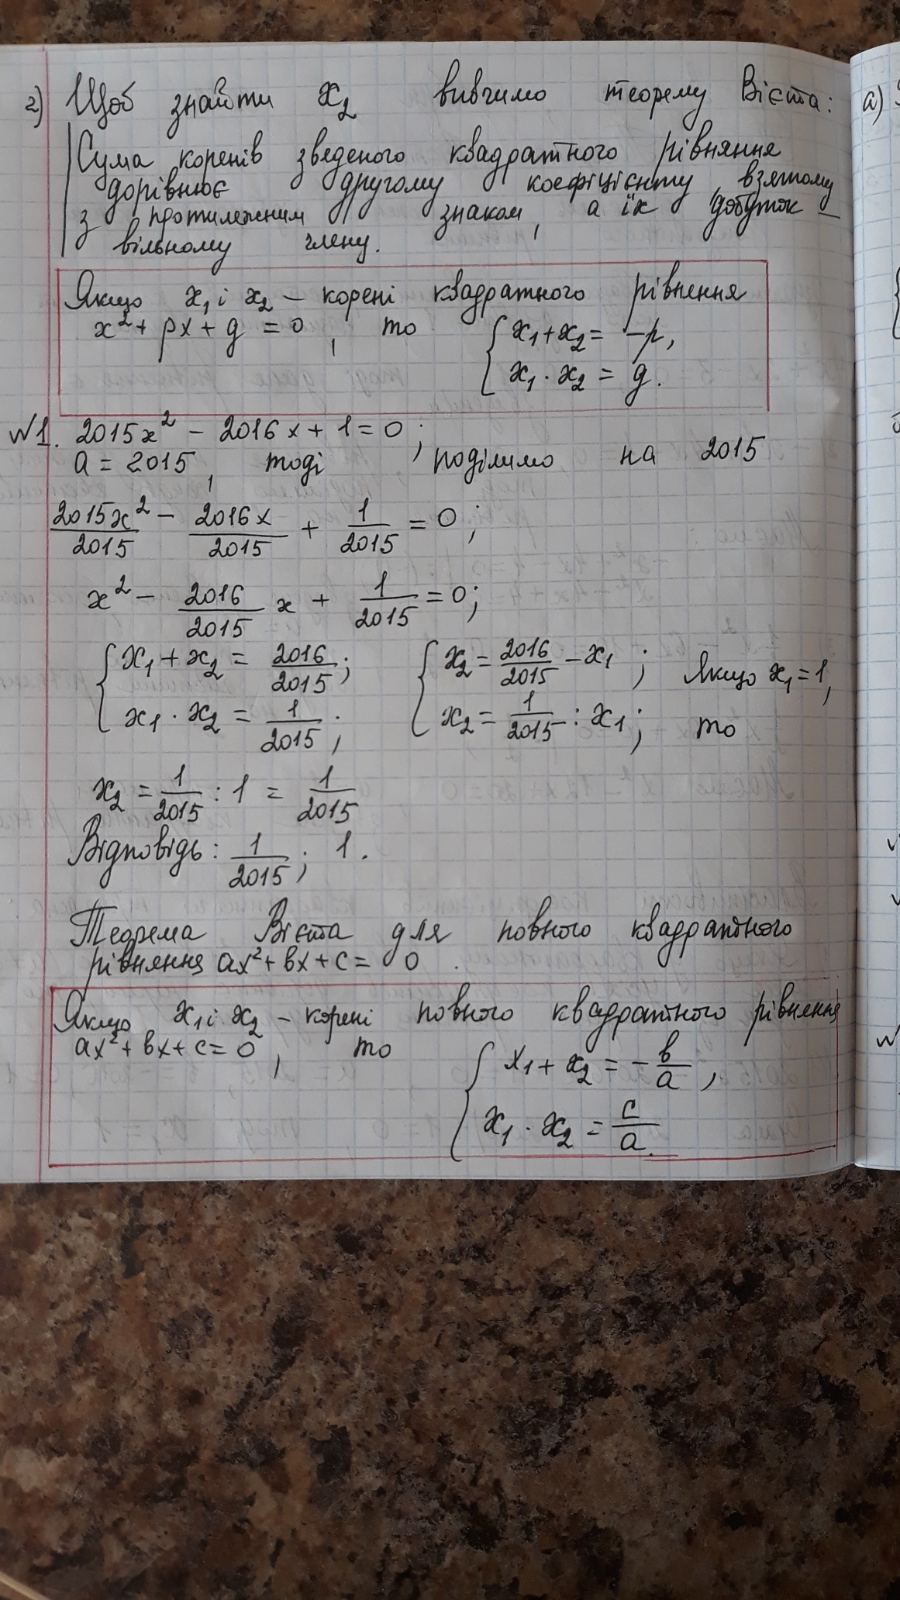 г) Щоб знайти x₂ вивчимо теорему Вієта:
Сума коренів зведеного квадратного рівняння
дорівнює другому коефіцієнту, взятому
з протилежним знаком, а їх добуток –
вільному члену.
Якщо x₁ і x₂ – корені квадратного рівнення
x² + px + g = 0, то { x₁ + x₂ = -p,
x₁ · x₂ = g.
№1. 2015x² - 2016x + 1 = 0;
a = 2015, тоді ; поділимо на 2015
2015x²/2015 - 2016x/2015 + 1/2015 = 0;
x² - 2016/2015 x + 1/2015 = 0;
{ x₁ + x₂ = 2016/2015; { x₂ = 2016/2015 - x₁; Якщо x₁ = 1,
x₁ · x₂ = 1/2015; x₂ = 1/2015 : x₁; то
x₂ = 1/2015 : 1 = 1/2015
Відповідь: 1/2015; 1.
Теорема Вієта для повного квадратного
рівняння ax² + bx + c = 0.
Якщо x₁ і x₂ – корені повного квадратного рівняння
ax² + bx + c = 0, то { x₁ + x₂ = -b/a,
x₁ · x₂ = c/a.
а)